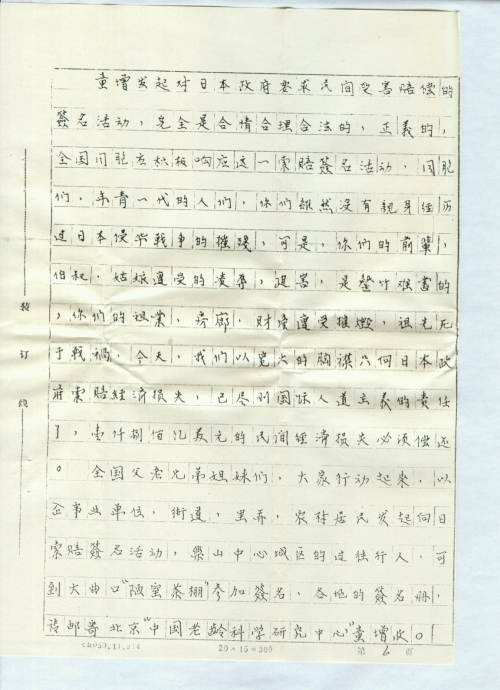 童增发起对日本政府要求民间受害赔偿的
簽名活动，完全是合情合理合法的，正義的，
全国同胞应积极响应这一索赔簽名活动，同胞
们，年青一代的人们，你们雖然没有親身经历
过日本侵华战争的摧残，可是，你们的前輩，
伯叔、姑娘遭受的凌辱，迫害，是罄竹难書的
，你们的祖業，房廊，财產遭受摧燬，祖先死
于戰禍，今天，我们以宽大的胸襟只向日本政
府索赔经濟损失，已尽到国际人道主義的責任
了，壹仟捌佰亿美元的民间经濟损失必须偿还
。全国父老兄弟姐妹们，大家行动起来，以
企事业单位，街道，里弄，农村居民发起向日
索赔簽名活动，樂山中心城区的过独行人，可
到大曲口"陋室茶棚"参加簽名，各地的簽名册，
请邮寄北京"中国老龄科学研究中心"童增收。
装
订
线
20×15=300
第 6 页